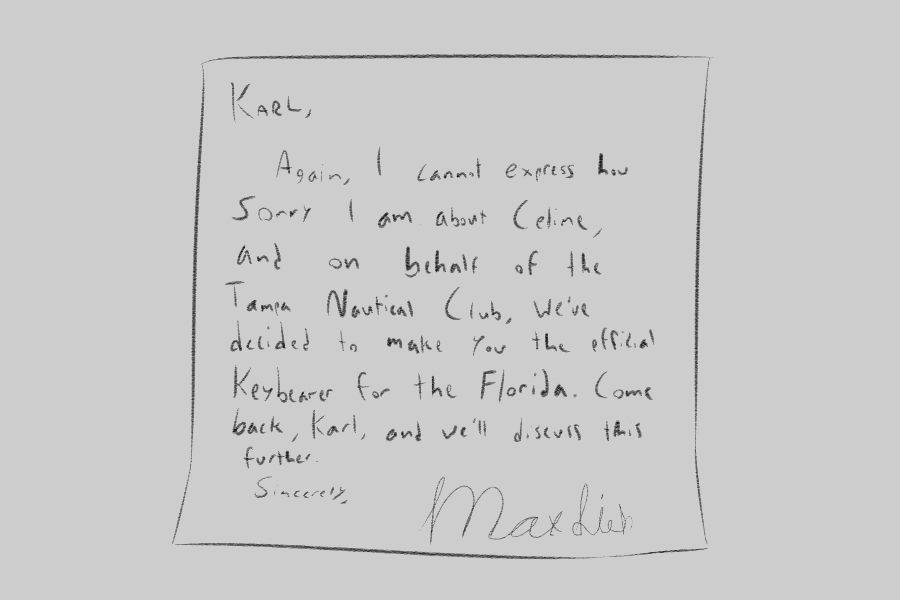 Karl,
Again, I cannot express how
Sorry I am about Celine,
and on behalf of the
Tampa Nautical Club, we've
decided to make you the official
Keybearer for the Florida. Come
back, Karl, and we'll discuss this
further.
Sincerely,
Max